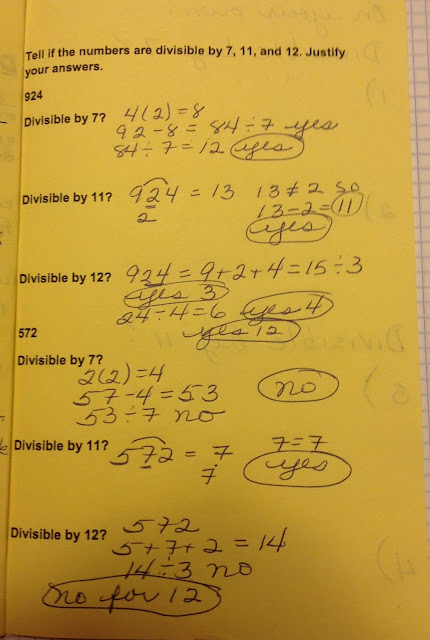 Tell if the numbers are divisible by 7, 11, and 12. Justify
your answers.
924
Divisible by 7? 4(2)=8
92-8= 84÷7 yes
84÷7=12 yes
Divisible by 11? 924 = 13 13≠2 so
2 13-2=11
yes
Divisible by 12? 924 = 9+2+4=15÷3
yes 3
24÷4=6 yes 4
yes 12
572
Divisible by 7?
2(2)=4
57-4=53 no
53÷7 no
Divisible by 11? 572 = 7 7=7
7 yes
Divisible by 12? 572
5+7+2=14
14÷3 no
no for 12